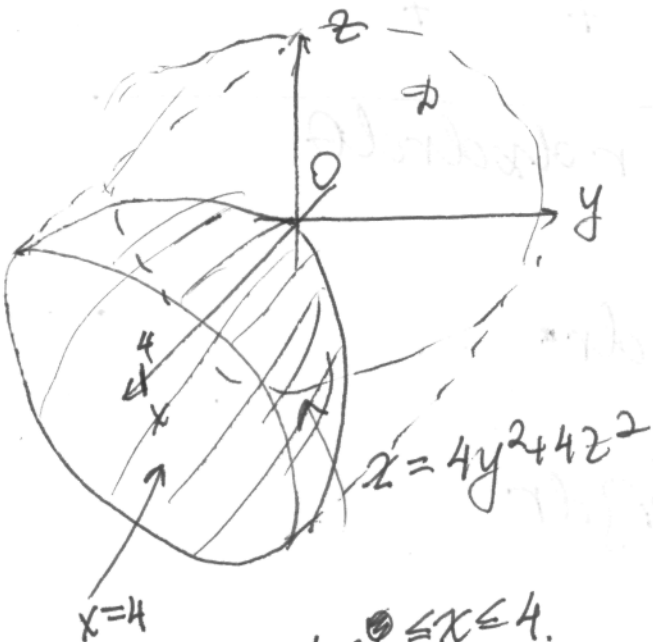 z
O
y
4
x
x = 4y²+4z²
x=4
≤x≤4.